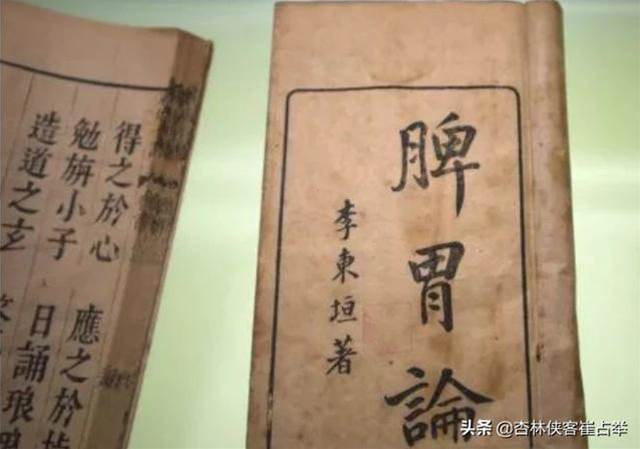 脾胃論
李東垣著
得之於心 應之於
勉旃小子 日誦琅
造道之玄
头条 @杏林侠客崔占举